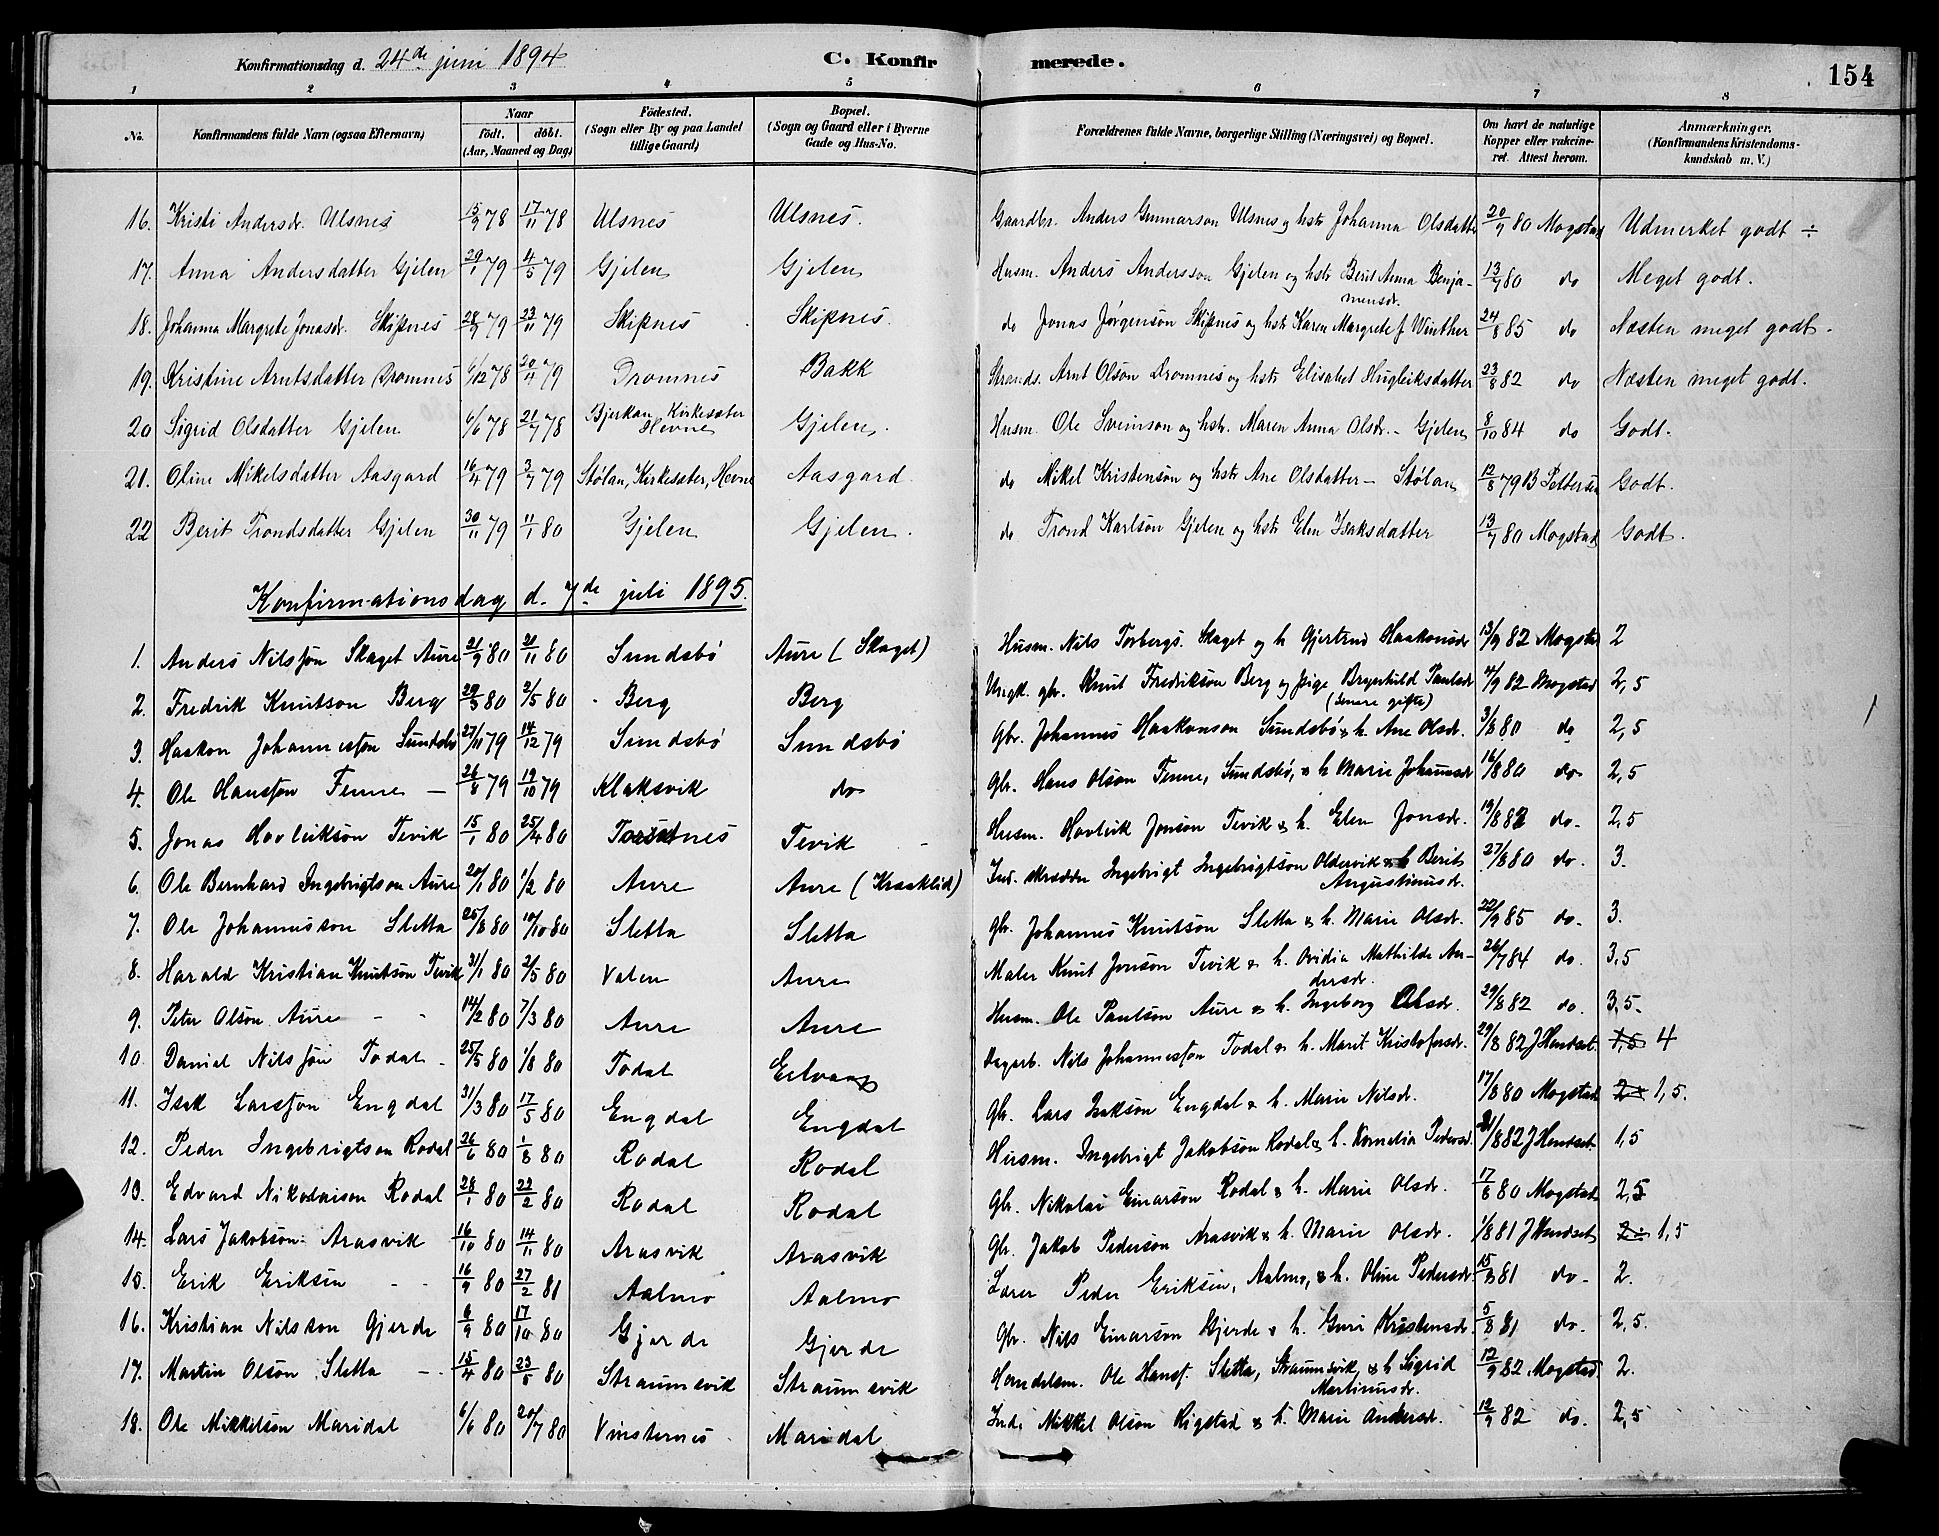 Konfirmationsdag d. 24de juni 1894 C. Konfirmerede. 154
1 2 3 4 5 6 7 8
No. Konfirmandens fulde Navn (ogsaa Efternavn) Naar født. døbt. (Aar, Maaned og Dag) Fødested. (Sogn eller By og paa Landet tillige Gaard) Bopæl. (Sogn og Gaard eller i Byerne Gade og Hus-No. Forældrenes fulde Navne, borgerlige Stilling (Næringsvei) og Bopæl. Om havt de naturlige Kopper eller vakcineret. Attest herom. Anmærkninger. (Konfirmandens Kristendomskundskab m. V.)
16. Kristi Andersdr. Ulsnes 15/9 78 17/11 78 Ulsnes Ulsnes. Gaardbr. Anders Gunnarson Ulsnes og hstr Johanna Olsdatter 20/7 80 Mogstad Udmerket godt ÷
17. Anna Andersdatter Gjelen 29/1 79 4/5 79 Gjelen Gjelen Husm. Anders Andersson Gjelen og hstr Berit Anna Benjamensdr. 13/7 80 do Meget godt.
18. Johanna Margrete Jonasdr. Skipnes 28/9 79 23/11 79 Skipnes Skipnes. do Jonas Jørgenson Skipnes og hstr Karen Margrete f Winther 24/8 85 do Næsten meget godt.
19. Kristine Arntsdatter Dromnes 6/12 78 20/4 79 Dromnes Bakk Strands. Arnt Olson Dromnes og hstr Elisabet Hugleiksdatter 23/8 82 do Næsten meget godt.
20 Sigrid Olsdatter Gjelen 6/6 78 21/7 78 Bjerkan Kirkesæter Hevne Gjelen. Husm. Ole Svinson og hstr. Maren Anna Olsdr. - Gjelen 8/10 84 do Godt.
21. Oline Mikelsdatter Aasgard 16/4 79 3/7 79 Stølan, Kirkesæter, Hevne Aasgard. do Mikel Kristenson og hstr Ane Olsdatter - Stølan 12/8 79 B Pettersen Godt.
22 Berit Trondsdatter Gjelen 30/11 79 11/1 80 Gjelen Gjelen. do Trond Karlson Gjelen og hstr Elen Isaksdatter 13/7 80 Mogstad Godt.
Konfirmationsdag d. 7de juli 1895.
1. Anders Nilsson Skaget Aure 21/9 80 21/11 80 Sundsbø Aure (Skaget) Husm. Nils Torbergs. Skaget og h Gjertrud Haakonsdr 13/9 82 Mogstad 2
2. Fredrik Knutson Berg 29/3 80 2/5 80 Berg Berg Ungk. gbr. Knut Fredrikson Berg og pige Brynhild Paulsdr (senere gifte) 7/9 82 Mogstad 2,5
3. Haakon Johannesson Sundsbø 27/11 79 14/12 79 Sundsbø Sundsbø Gbr. Johannes Haakonson Sundsbø & h. Ane Olsdr. 3/8 80 do 2,5
4. Ole Hansson Tenne - 26/8 79 19/10 79 Klaksvik do Gbr. Hans Olson Tenne, Sundsbø, & h Marie Johannsdr 16/8 80 do 2,5
5. Jonas Hovleikson Tevik 15/1 80 25/4 80 Torsetnes Tevik Husm. Hovleik Jonson Tevik & h. Elen Jonsdr. 19/8 82 do. 2,5
6. Ole Bernhard Ingebrigtson Aure 20/1 80 1/2 80 Aure Aure (Kraaklid) Ind. skrædder Ingebrigt Ingebrigtson Oldervik & h Berit Augustinusdr. 27/8 80 do. 3.
7. Ole Johannesson Sletta 25/8 80 10/10 80 Sletta Sletta Gbr. Johannes Knutson Sletta & h. Marie Olsdr. 22/9 85 do. 3.
8. Harald Kristian Knutson Tevik 31/1 80 2/5 80 Valen Aure Maler Knut Jonson Tevik & h. Ovidia Mathilde Andersdr. 26/7 84 do. 3,5
9. Peter Olson Aure - - 14/2 80 7/3 80 Aure Aure Husm. Ole Paulson Aure & h. Ingeborg Olsdr. 29/8 82 do. 3,5.
10. Daniel Nilsson Todal - 25/5 80 1/8 80 Todal Eelvaag Dagarb. Nils Johannesson Todal & h. Marit Kristofersdr. 29/8 82 J Hendset. 1,5 4
11. Isak Larsson Engdal 31/3 80 17/5 80 Engdal Engdal Gbr. Lars Isakson Engdal & h. Marie Nilsdr. 17/8 80 Mogstad 1,5.
12. Peder Ingebrigtson Rodal 26/6 80 1/8 80 Rodal Rodal Husm. Ingebrigt Jakobson Rodal & h. Kornelia Pedersdr. 31/8 82 J Hendset. 1,5
13. Edvard Nikolaison Rodal 28/1 80 22/2 80 Rodal Rodal Gbr. Nikolai Einarson Rodal & h. Marie Olsdr. 17/8 80 Mogstad 2,5
14. Lars Jakobson Arasvik 16/10 80 14/11 80 Arasvik Arasvik Gbr. Jakob Pederson Arasvik & h. Marie Olsdr. 1/8 81 J Hendset 1,5
15. Erik Eriksen - - 16/9 80 27/2 81 Aalmo Aalmo Lærer Peder Eriksen, Aalmo, & h. Oline Pedersdr. 15/8 81 do. 2.
16. Kristian Nilsson Gjerde 6/9 80 17/10 80 Gjerde Gjerde Gbr. Nils Einarson Gjerde & h. Guri Kristensdr. 5/8 81 do. 2,5.
17. Martin Olson Sletta - 15/4 80 23/5 80 Straumsvik Straumsvik Handelsm. Ole Hanss. Sletta, Straumsvik, & h Sigrid Martinusdr. 12/9 82 Mogstad. 2.
18. Ole Mikkelson Maridal 6/6 80 20/7 80 Vinsternes Maridal Inds. Mikkel Olson Rigstad & h. Marie Andersdr. 12/9 82 do. 2,5